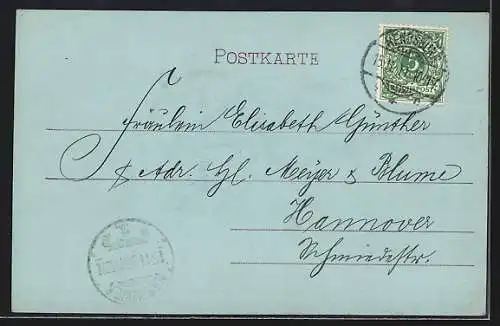 POSTKARTE
5
Fräulein Elisabeth Günther
Adr. Hl. Meyer & Blume
Hannover
Schmiedestr.